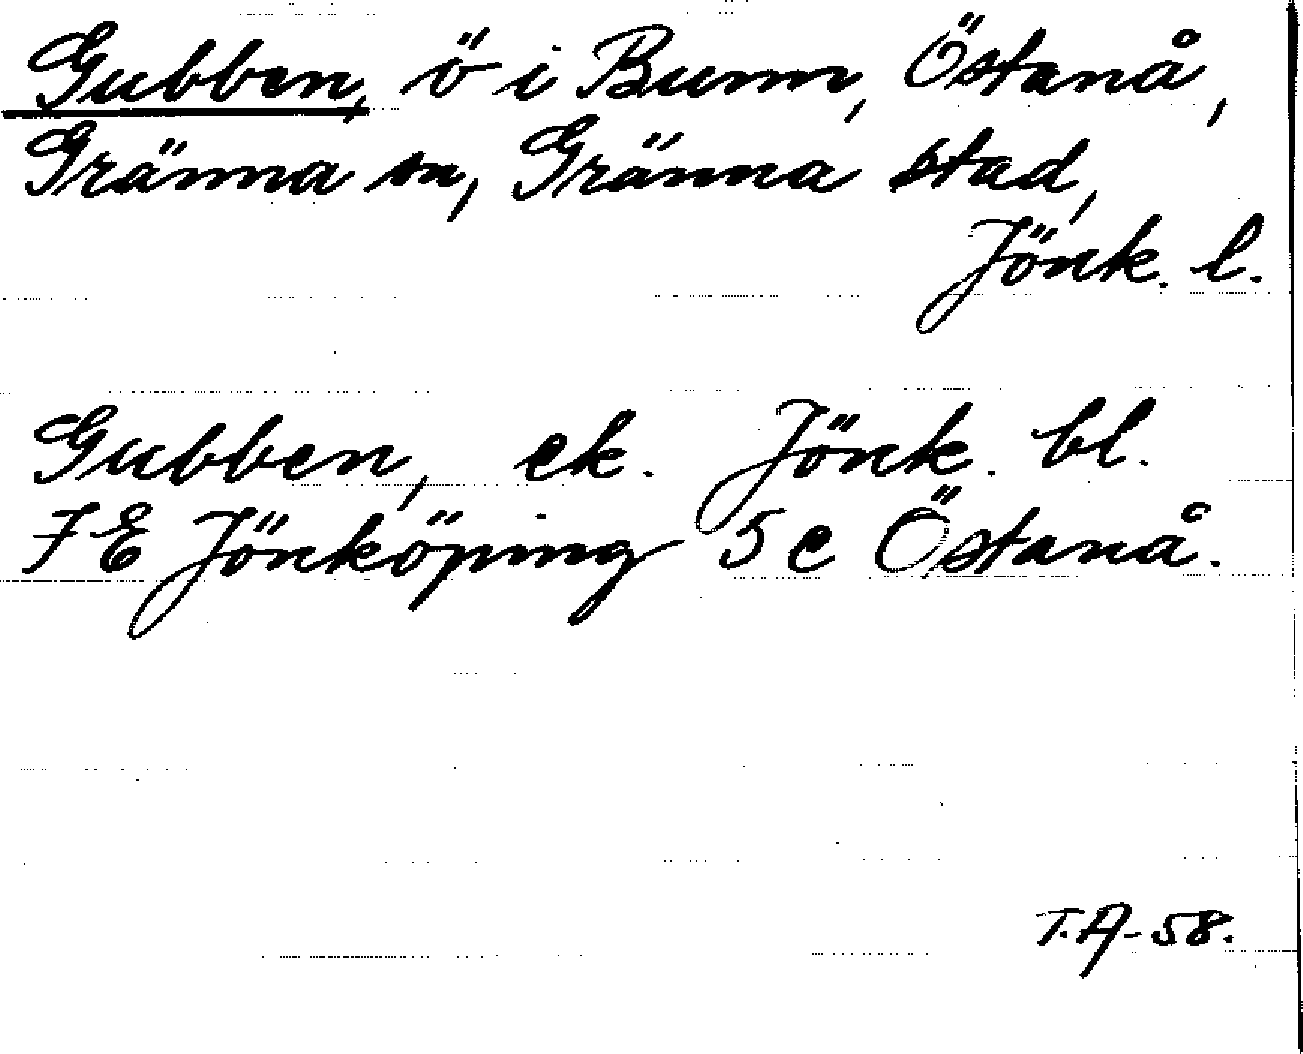 Gubben, ö i Bunn, Östanå,
Gränna sn, Gränna stad,
Jönk. l.
Gubben, ek. Jönk. bl.
7E Jönköping 5 c Östanå.
T.A-58.